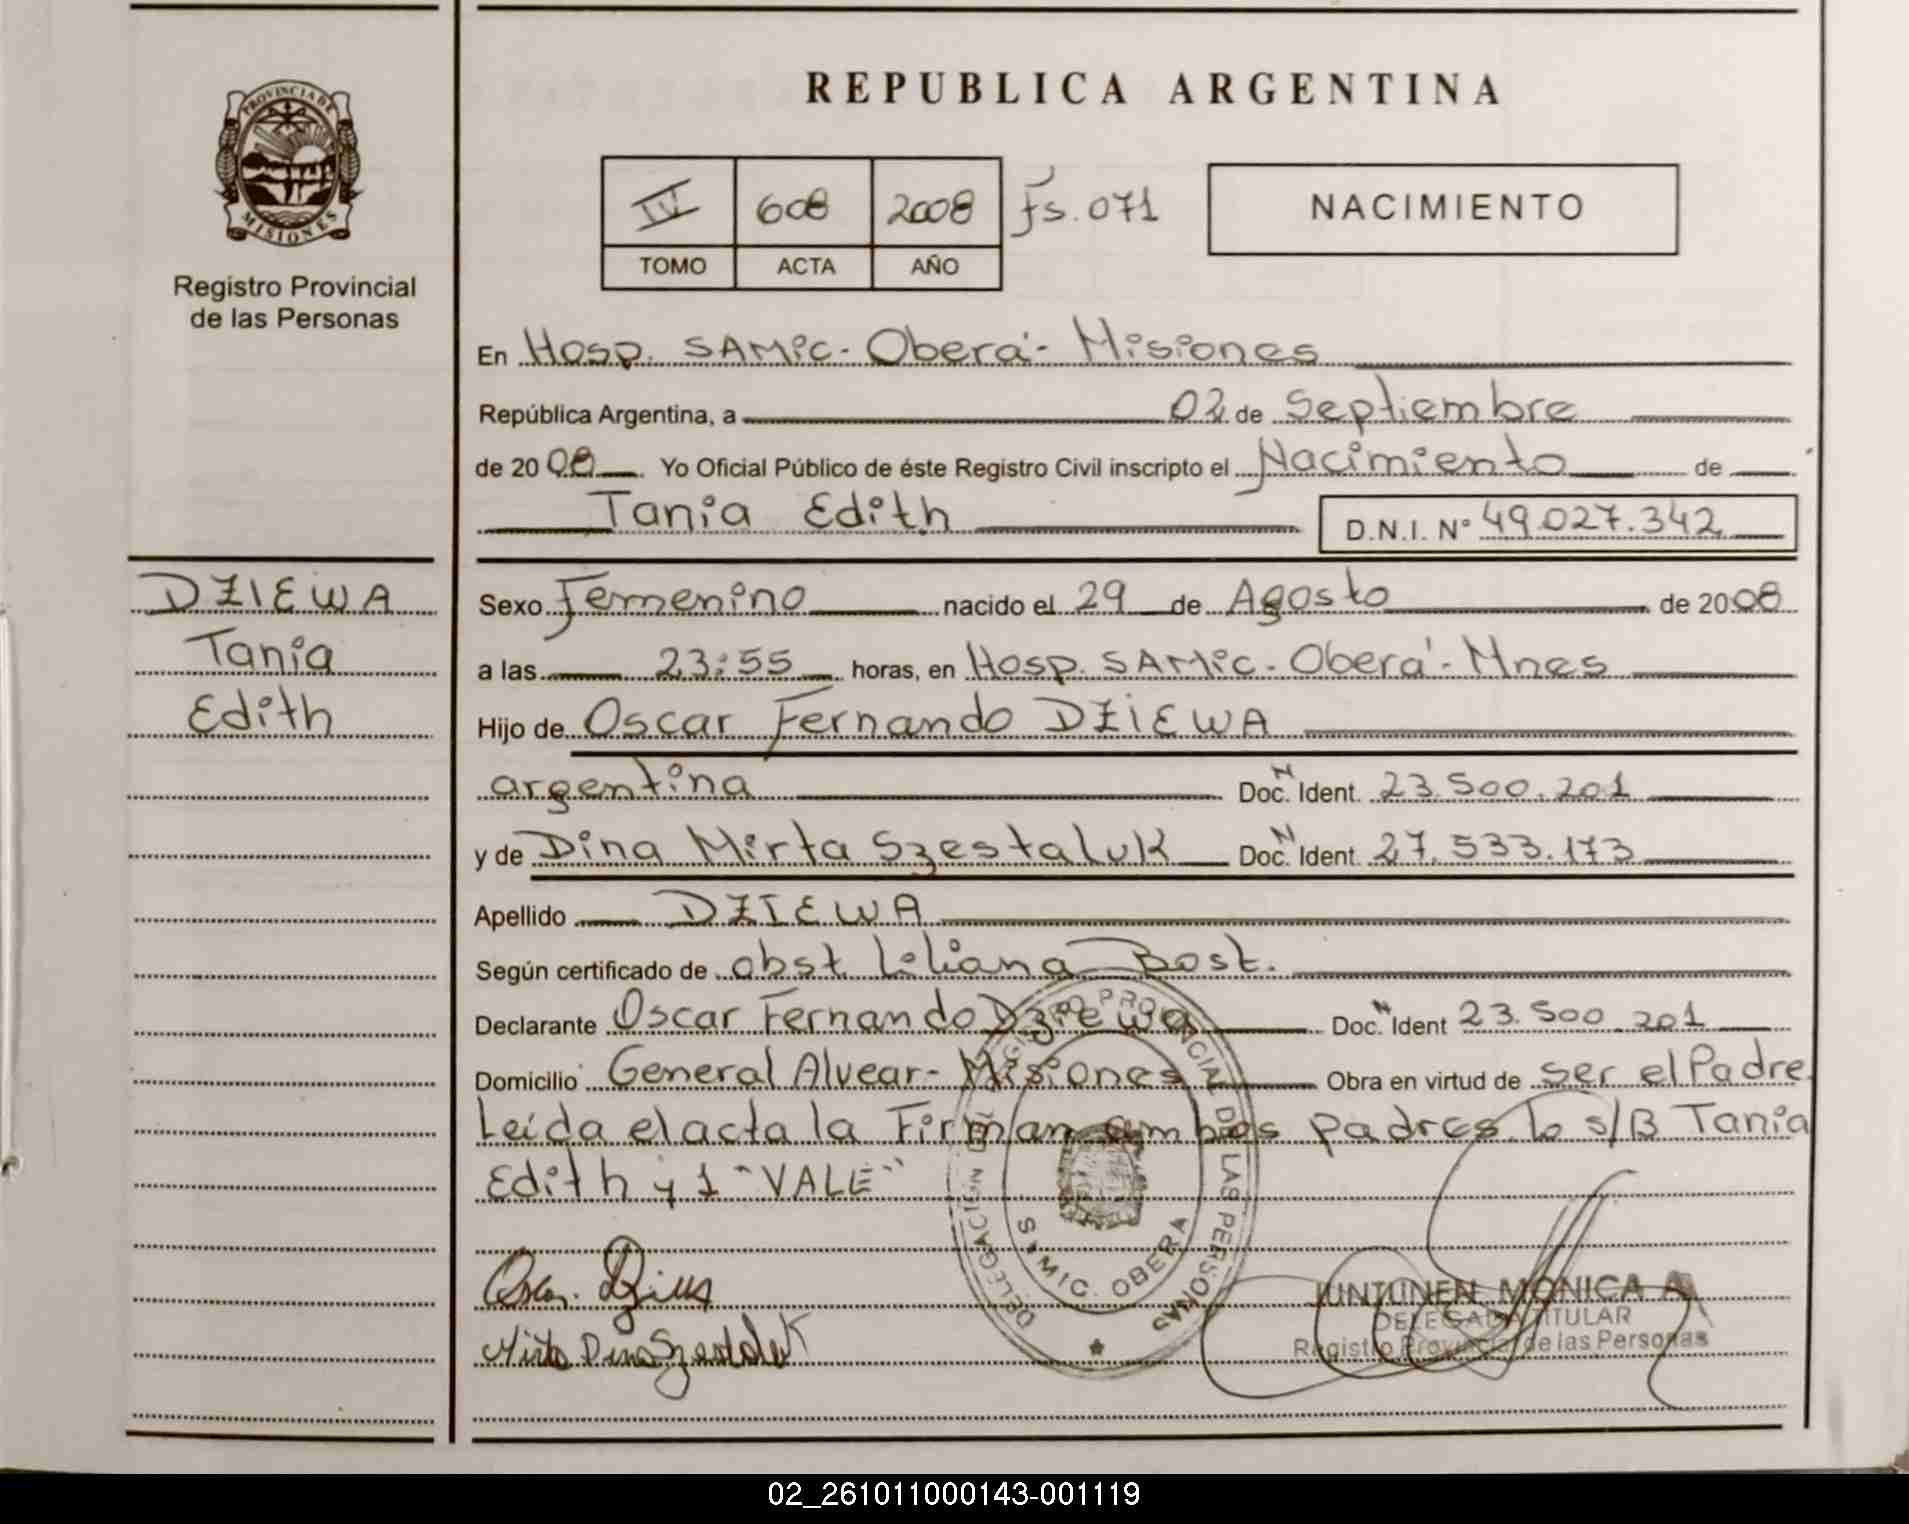 REPUBLICA ARGENTINA
PROVINCIA DE
MISIONES
Registro Provincial
de las Personas
IV 608 2008 Fs. 071
TOMO ACTA AÑO
NACIMIENTO
En Hosp. SAMic - Oberá - Misiones
República Argentina, a 02 de Septiembre
de 2008 Yo Oficial Público de éste Registro Civil inscripto el Nacimiento de
Tania Edith D.N.I. N° 49.027.342
DZIEWA
Tania
Edith
Sexo Femenino nacido el 29 de Agosto de 2008
a las 23:55 horas, en Hosp. SAMic - Oberá - Mnes
Hijo de Oscar Fernando DZIEWA
argentina Doc. N Ident. 23.500.201
y de Dina Mirta Szestaluk Doc. N Ident. 27.533.173
Apellido DZIEWA
Según certificado de obst Liliana Bost.
Declarante Oscar Fernando Dziewa Doc. N Ident 23.500.201
Domicilio General Alvear - Misiones Obra en virtud de ser el Padre
Leída el acta la Firman ambos padres. lo s/B Tania
Edith y 1 "VALE"
DELEGACION DEL REGISTRO PROVINCIAL DE LAS PERSONAS
SAMIC. OBERA
JUNTUNEN MONICA A
DELEGADA TITULAR
Registro Provincial de las Personas
02_261011000143-001119